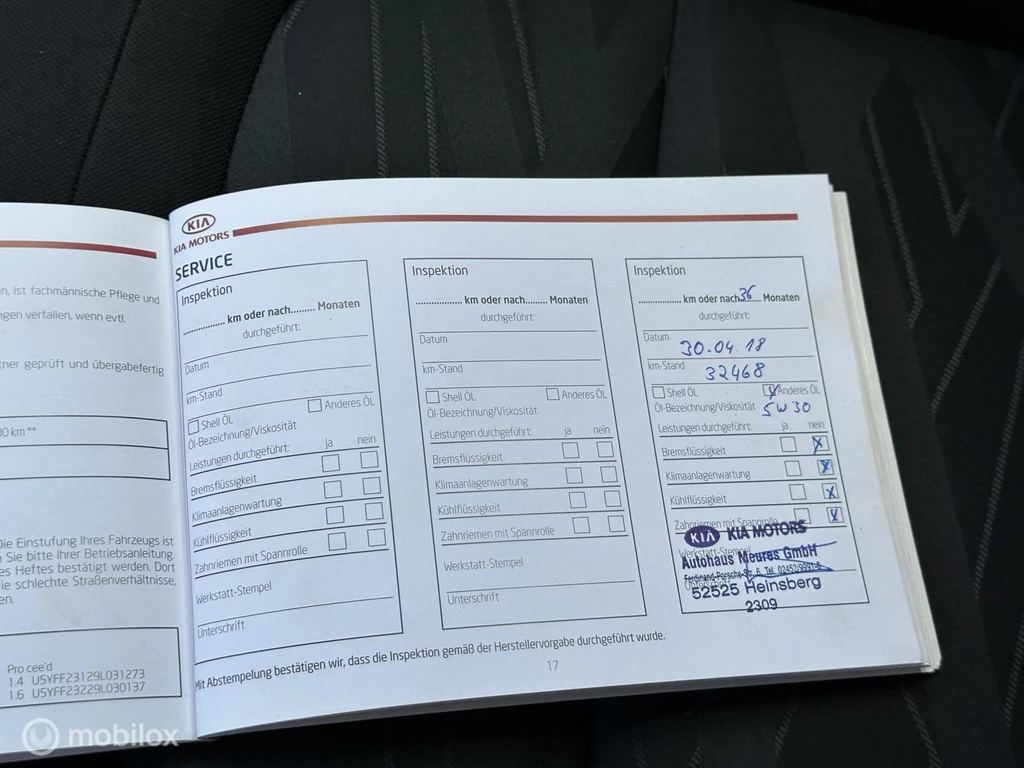 n, ist fachmännische Pflege und
ngen verfallen, wenn evtl.
tner geprüft und übergabefertig
00 km **
Die Einstufung Ihres Fahrzeugs ist
Sie bitte Ihrer Betriebsanleitung.
es Heftes bestätigt werden. Dort
ie schlechte Straßenverhältnisse,
en.
Pro cee'd
1.4 U5YFF23129L031273
1.6 U5YFF23229L030137
KIA
KIA MOTORS
SERVICE
Inspektion
.................. km oder nach......... Monaten
durchgeführt:
Datum
km-Stand
Shell ÖL
Anderes ÖL
Öl-Bezeichnung/Viskosität
Leistungen durchgeführt: ja nein
Bremsflüssigkeit
Klimaanlagenwartung
Kühlflüssigkeit
Zahnriemen mit Spannrolle
Werkstatt-Stempel
Unterschrift
Inspektion
.................. km oder nach......... Monaten
durchgeführt:
Datum
km-Stand
Shell ÖL
Anderes ÖL
Öl-Bezeichnung/Viskosität
Leistungen durchgeführt: ja nein
Bremsflüssigkeit
Klimaanlagenwartung
Kühlflüssigkeit
Zahnriemen mit Spannrolle
Werkstatt-Stempel
Unterschrift
Inspektion
.................. km oder nach 36 Monaten
durchgeführt:
Datum 30.04.18
km-Stand 32468
Shell ÖL
Anderes ÖL
Öl-Bezeichnung/Viskosität 5W30
Leistungen durchgeführt: ja nein
Bremsflüssigkeit
Klimaanlagenwartung
Kühlflüssigkeit
Zahnriemen mit Spannrolle
KIA KIA MOTORS
Werkstatt-Stempel
Autohaus Meures GmbH
Ferdinand-Porsche-Str. 6 Tel.
52525 Heinsberg
2309
Mit Abstempelung bestätigen wir, dass die Inspektion gemäß der Herstellervorgabe durchgeführt wurde.
17
mobilox